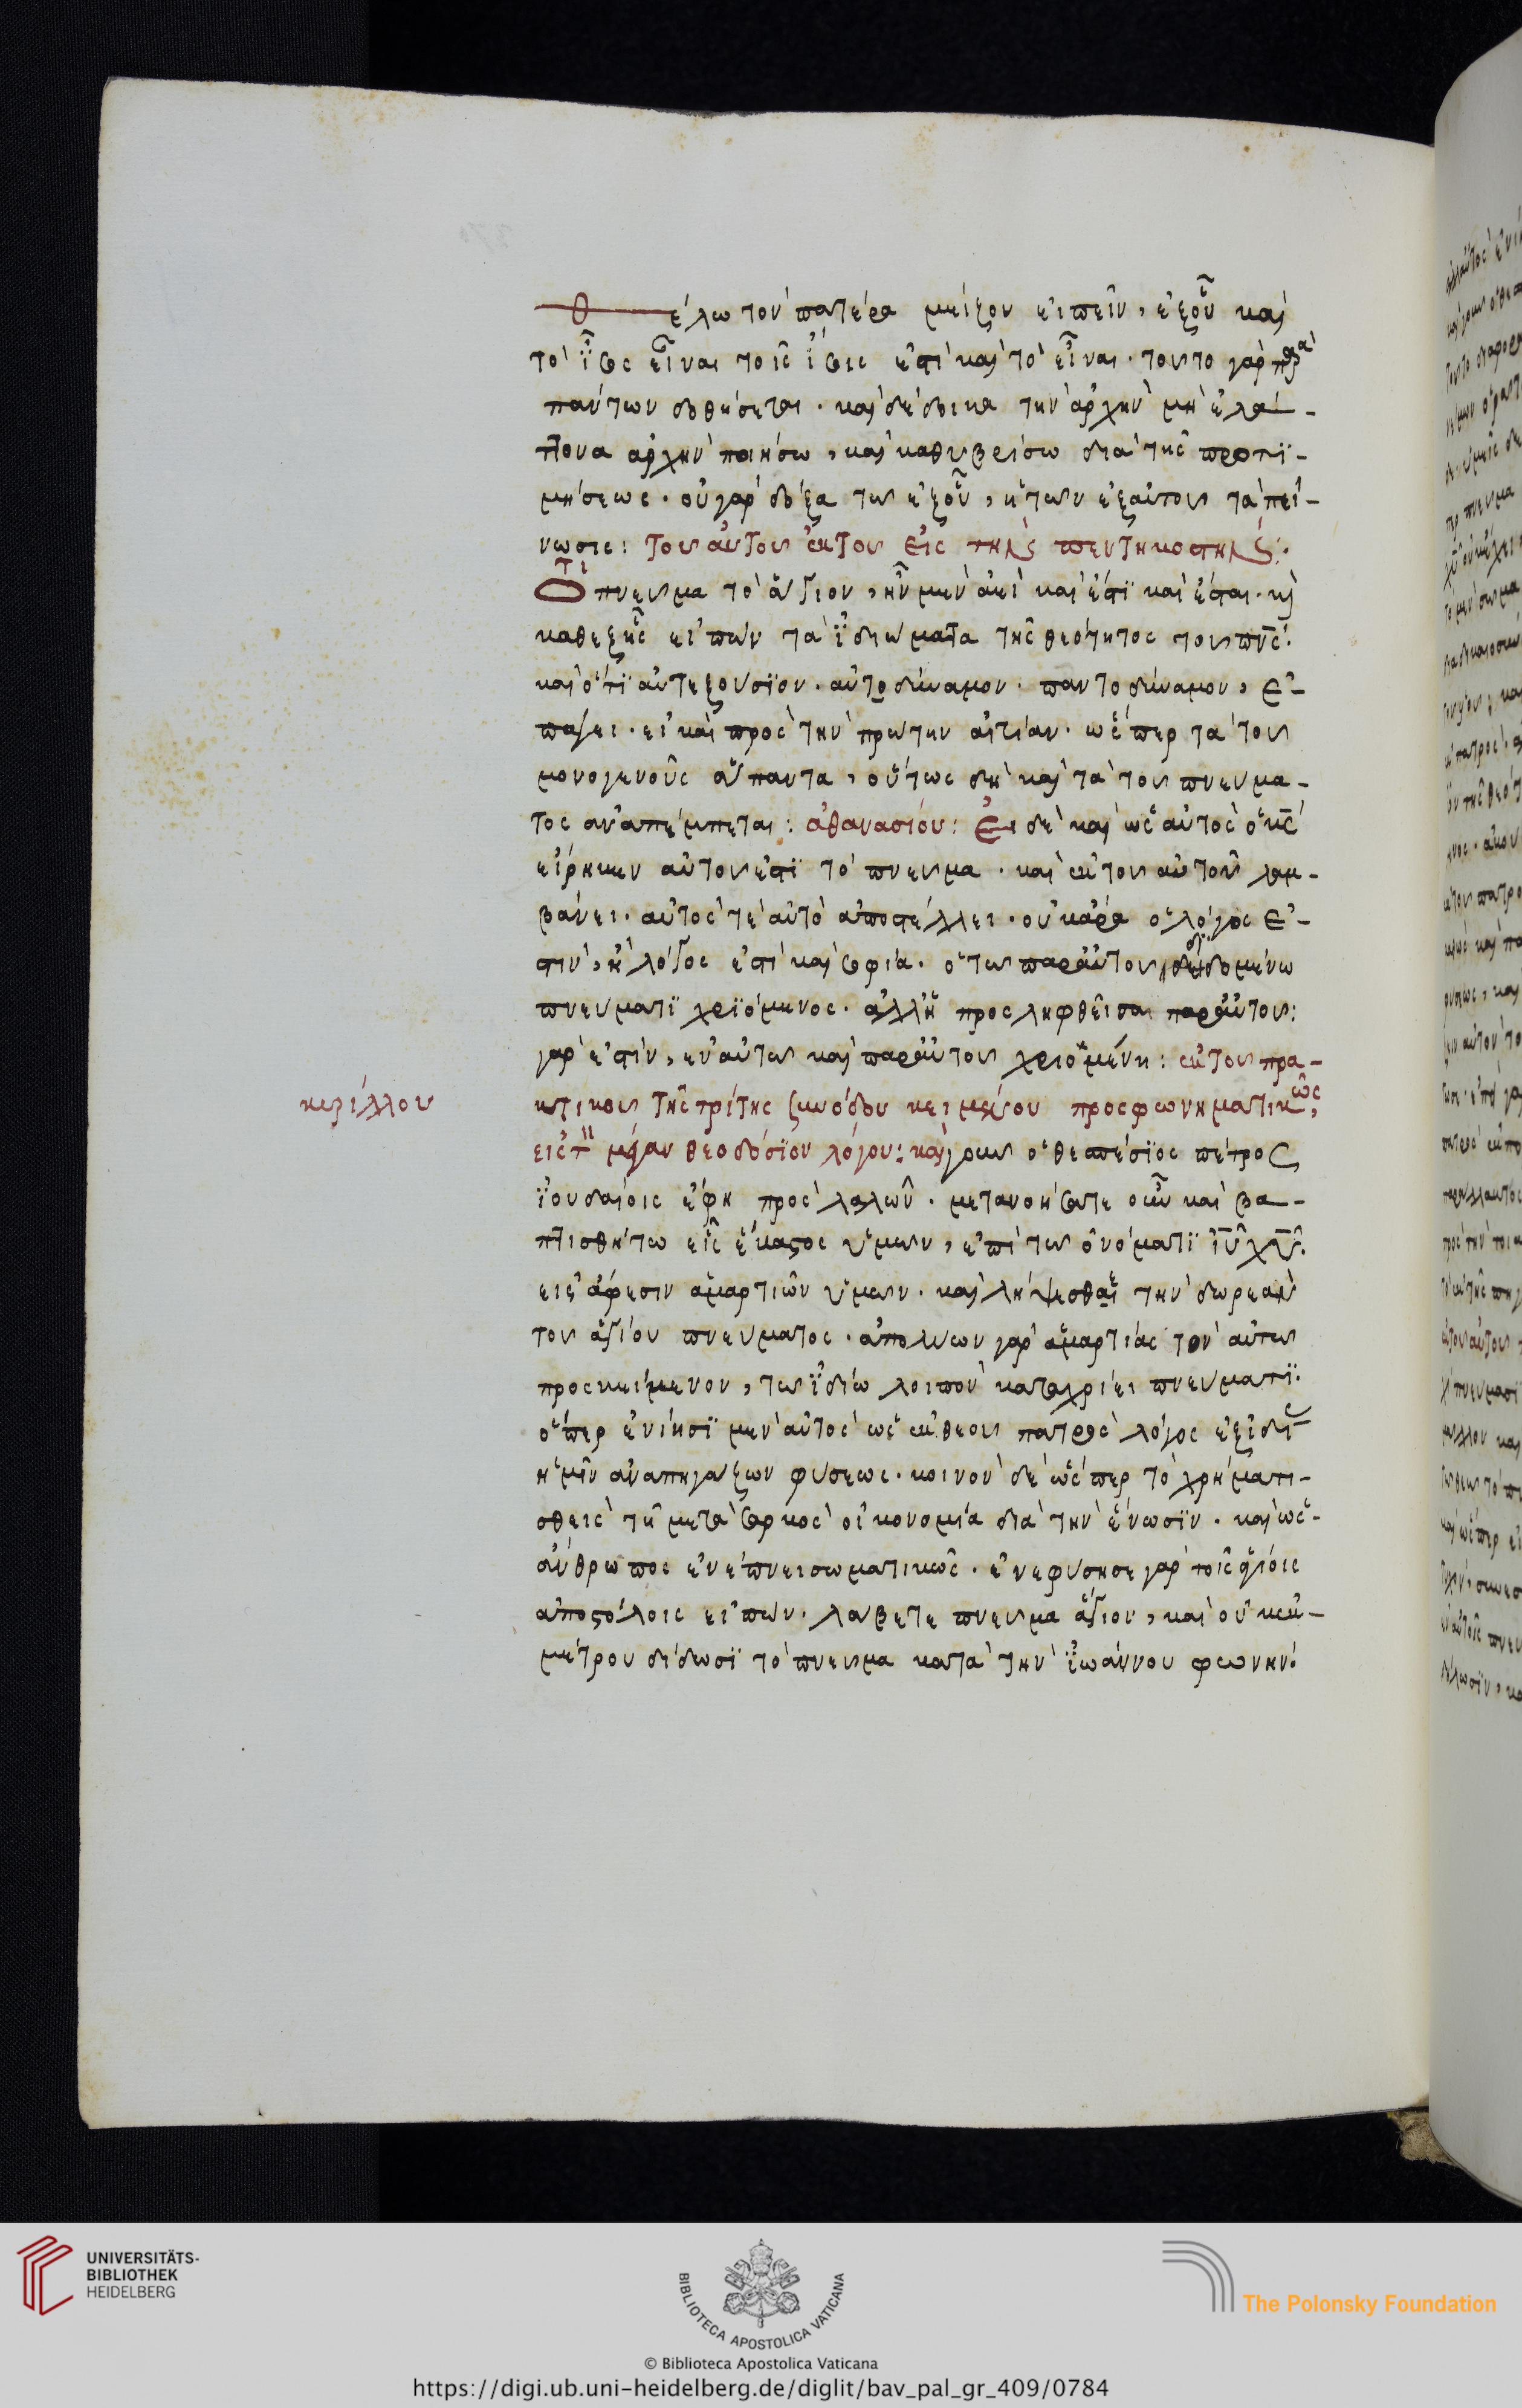 Θέλω τὸν πατέρα μείζον εἰπεῖν, ἐξοὗ καὶ
τὸ ἴσοις εἶναι τοῖς ἴσοις ἐστὶ καὶ τὸ εἶναι. τοῦτο γὰρ παρὰ
πάντων δοθήσεται. καὶ δέδοικα τὴν ἀρχὴν μὴ ἐλατ-
τόνα ἀρχὴν ποιήσω, καὶ καθυβρίσω διὰ τῆς προτι-
μήσεως. οὐ γὰρ δόξα τῶ ἐξοὗ, ἡ τῶν ἐξαὐτοῦ ταπεί-
νωσις: τοῦ αὐτοῦ ἐκ τοῦ εἰς τὴν πεντηκοστήν:
Ὅτι πνεῦμα τὸ ἅγιον, ἦν μὲν ἀεὶ καὶ ἔστι καὶ ἔσται. καὶ
καθεξῆς εἰπὼν τὰ ἰδιώματα τῆς θεότητος τοῦ πνς.
καὶ ὅτι αὐτεξούσιον. αὐτοδύναμον. παντοδύναμον, ἐ-
πάγει. εἰ καὶ πρὸς τὴν πρώτην αἰτίαν. ὥσπερ τὰ τοῦ
μονογενοῦς ἅπαντα, οὕτως δὴ καὶ τὰ τοῦ πνεύμα-
τος ἀναπέμπεται: ἀθανασίου: Εἰ δὲ καὶ ὡς αὐτὸς ὁ κς
εἴρηκεν αὐτοῦ ἐστὶ τὸ πνεῦμα. καὶ ἐκ τοῦ αὐτοῦ λαμ-
βάνει. αὐτός τε αὐτὸ ἀποστέλλει. οὐκ ἄρα ὁ λόγος ἐ-
στὶν, ἡ λόγος ἐστὶ καὶ σοφία. ὁ τῶ παραὐτοῦ διδομένω
πνεύματι χριόμενος. ἀλλ' ἡ προσληφθεῖσα παραὐτοῦ:
γάρ ἐστιν, ἐν αὐτῶ καὶ παραὐτοῦ χριομένη: ἐκ τοῦ πρα-
κτικοῦ τῆς τρίτης συνόδου κειμένου προσφωνηματικῶς,
εἰς τὸν μέγαν θεοδόσιον λόγου: καὶ γοῦν ὁ θεσπέσιος πέτρος
ἰουδαίοις ἔφη προσλαλῶν. μετανοήσατε οὖν καὶ βα-
πτισθήτω εἷς ἕκαστος ὑμῶν, ἐπὶ τῶ ὀνόματι ιυ χυ.
εἰς ἄφεσιν ἁμαρτιῶν ὑμῶν. καὶ λήψεσθαι τὴν δωρεὰν
τοῦ ἁγίου πνεύματος. ἀπολύων γὰρ ἁμαρτίας τὸν αὐτῶ
προσκείμενον, τῶ ἰδίω λοιπὸν καταχρίει πνεύματι.
ὅπερ ἐνίησι μὲν αὐτὸς ὡς ἐκ θεοῦ πατρὸς λόγος ἐξ ἰδίας
ἡμῖν ἀναπηγάζων φύσεως. κοινὸν δὲ ὥσπερ τὸ χρῆμα τι-
θεὶς τῆ μετὰ σαρκὸς οἰκονομία διὰ τὴν ἕνωσιν. καὶ ὡς
ἄνθρωπος ἐνέπνει σωματικῶς. ἐνεφύσησε γὰρ τοῖς ἁγίοις
ἀποστόλοις εἰπών. λάβετε πνεῦμα ἅγιον, καὶ οὐκ ἐκ
μέτρου δίδωσι τὸ πνεῦμα κατὰ τὴν ἰωάννου φωνήν.
κυρίλλου
UNIVERSITÄTS-
BIBLIOTHEK
HEIDELBERG
BIBLIOTECA APOSTOLICA VATICANA
The Polonsky Foundation
© Biblioteca Apostolica Vaticana
https://digi.ub.uni-heidelberg.de/diglit/bav_pal_gr_409/0784